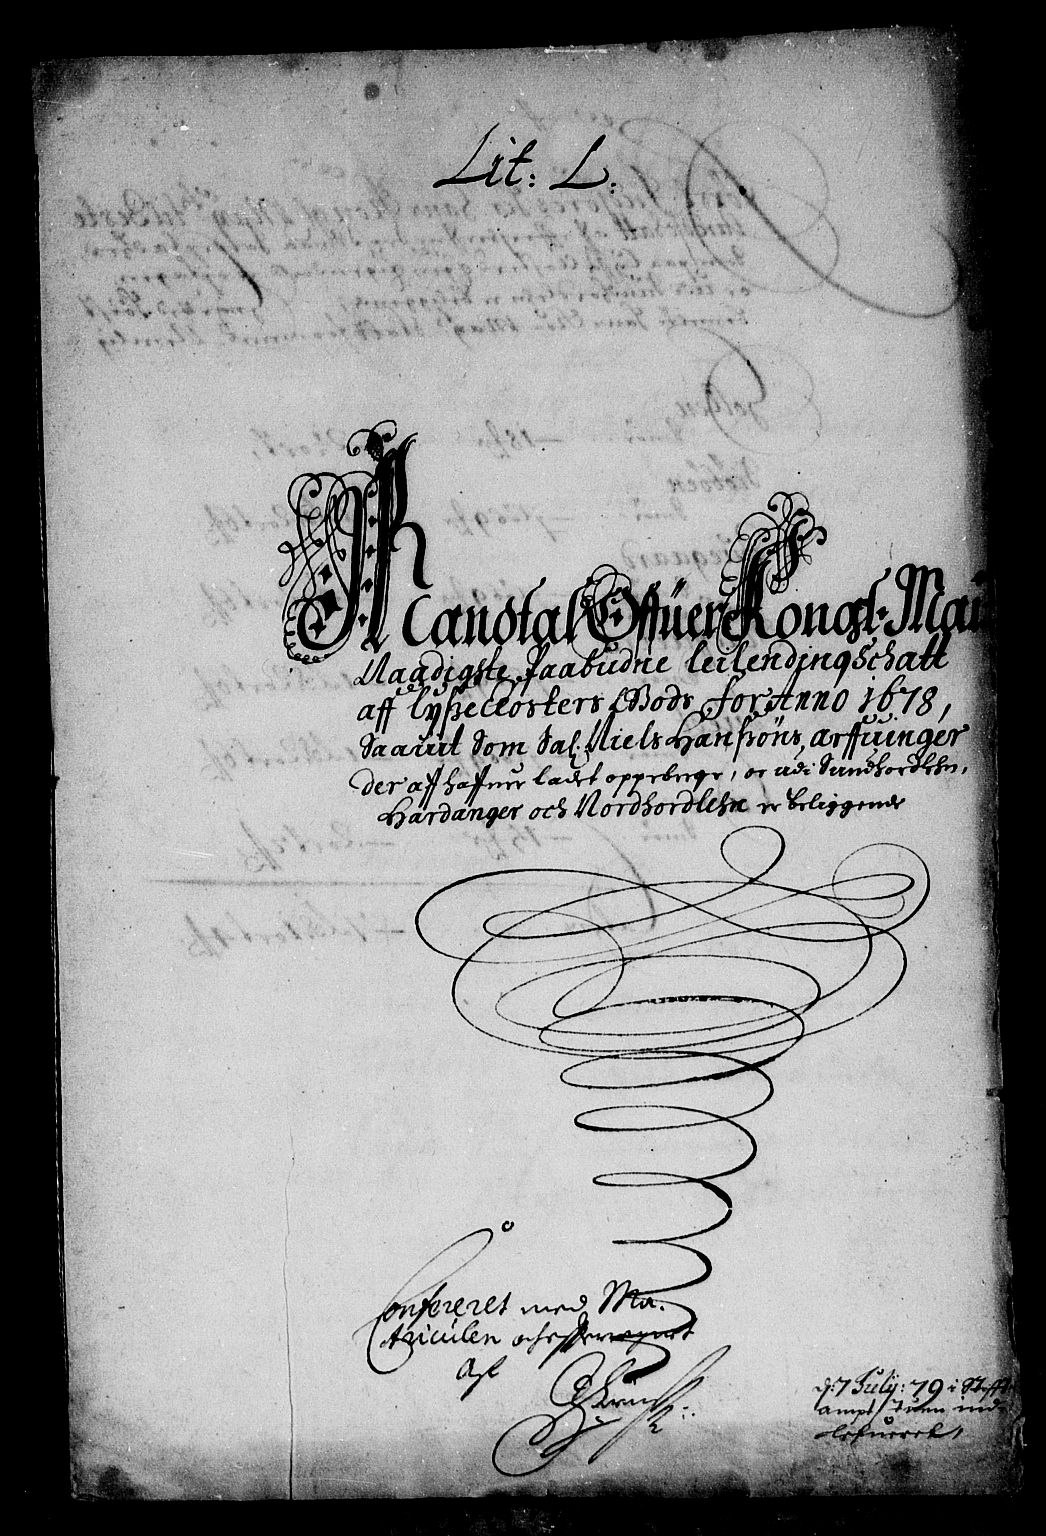 Lit: L.
Mandtal Offuer Kongl: May
Naadigste paabudne leilendingschatt
aff Lysseclosters Gods for Anno 1678,
Saauit Som Sal: Niels Hanssøns arffuinger
der aff haffuer ladet oppeberge, oc udi Sundhordlehn,
Hardanger och Nordhordlehn er beliggende
Confereret med Ma-
triculen och efterregnet
d: 7 July: 79 i Stifft
ampt stuen ind-
lefueret